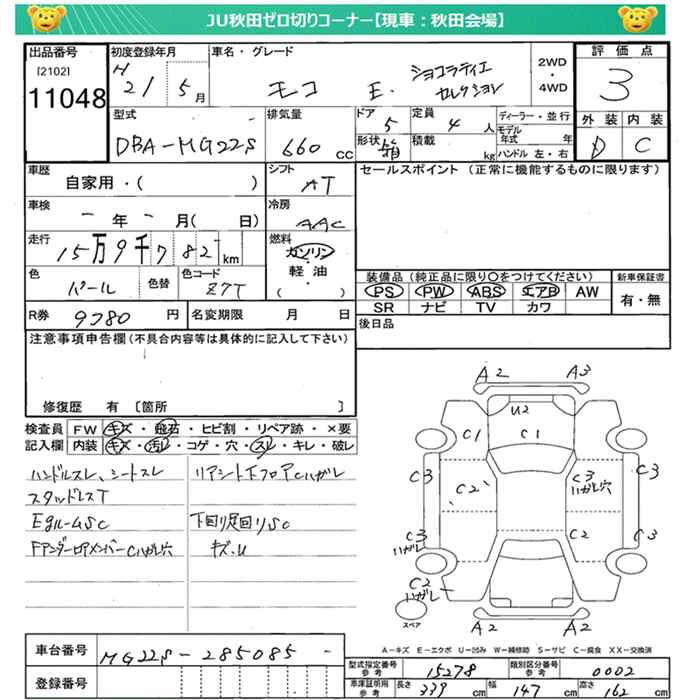 JU秋田ゼロ切りコーナー【現車：秋田会場】
出品番号
[2102]
11048
初度登録年月
H 21 5 月
車名・グレード
モコ E. ショコラティエ セレクション
2WD ・ 4WD
評価点
3
外装 内装
D C
型式
DBA-MG22S
排気量
660 CC
ドア 5
定員 4 人
ディーラー・並行
モデル年式 年
形状 箱
積載 kg
ハンドル 左・右
車歴
自家用・( )
シフト
AT
セールスポイント (正常に機能するものに限ります)
車検
- 年 - 月( 日)
冷房
AAC
走行
15万9千782 km
燃料
ガソリン・軽油
( )
色
パール
色替
色コード
Z7T
装備品 (純正品に限り○をつけてください)
PS PW ABS エアB AW
SR ナビ TV カワ
新車保証書
有・無
R券 9780 円
名変期限 月 日
後日品
注意事項申告欄(不具合内容等は具体的に記入して下さい)
修復歴 有 〔箇所 〕
検査員記入欄
FW キズ・飛石・ヒビ割・リペア跡・×要
内装 キズ・汚レ・コゲ・穴・スレ・キレ・破レ
ハンドルスレ、シートスレ
スタッドレスT
EgルームSC
FアンダーロアメンバーCハガレ穴
リアシート下フロアCハガレ
下回り足回りSC
キズ.U
A2 A3
U2
C1 C1
C3 C2 C3 ハガレ穴 C3
C3 ハガレ C2 C3
C2 ハガレ
A2 A2
スペア
A-キズ E-エクボ U-凹み W-補修跡 S-サビ C-腐食 XX-交換済
車台番号
MG22S-285085-
登録番号
型式指定番号 参考 15278
類別区分番号 参考 0002
車庫証明用 参考 長さ 339 cm 幅 147 cm 高さ 162 cm